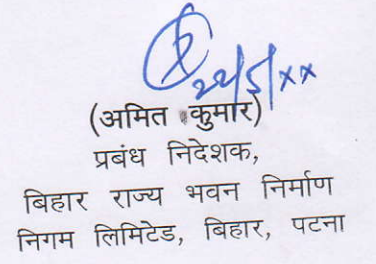 22/5/xx
(अमित कुमार)
प्रबंध निदेशक,
बिहार राज्य भवन निर्माण
निगम लिमिटेड, बिहार, पटना